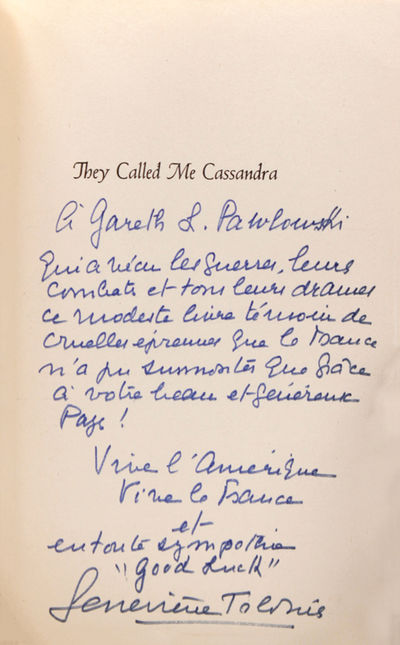 They Called Me Cassandra
à Gareth L. Pawlowski
qui a vécu les guerres, leurs
combats et tous leurs drames
ce modeste livre témoin de
cruelles épreuves que la France
n'a pu surmonter que grâce
à votre beau et généreux
Pays !
Vive l'Amérique
Vive la France
et
en toute sympathie
"Good Luck"
Geneviève Tabouis